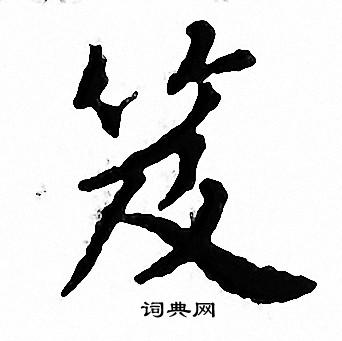 笈
词典网